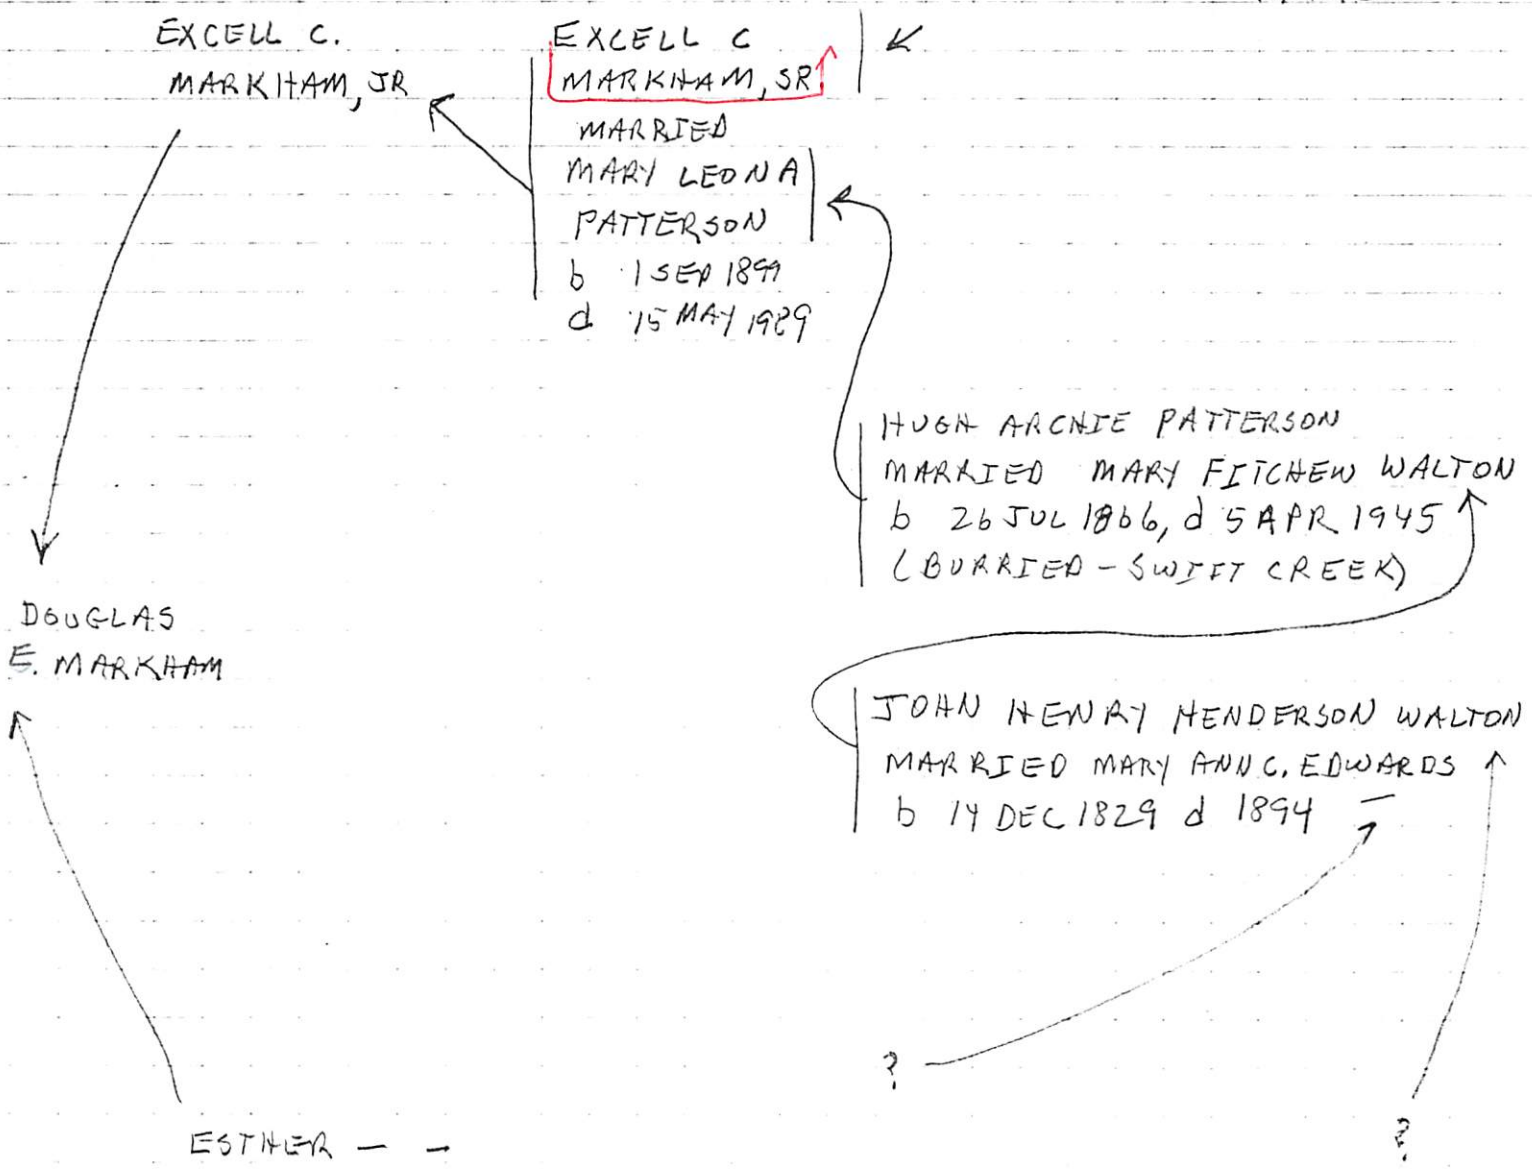 EXCELL C.
MARKHAM, JR
EXCELL C
MARKHAM, SR
MARRIED
MARY LEONA
PATTERSON
b 1 SEP 1899
d 15 MAY 1989
HUGH ARCHIE PATTERSON
MARRIED MARY FITCHEW WALTON
b 26 JUL 1866, d 5 APR 1945
(BURRIED – SWIFT CREEK)
DOUGLAS
E. MARKHAM
JOHN HENRY HENDERSON WALTON
MARRIED MARY ANN C. EDWARDS
b 14 DEC 1829 d 1894 —
?
?
ESTHER — —